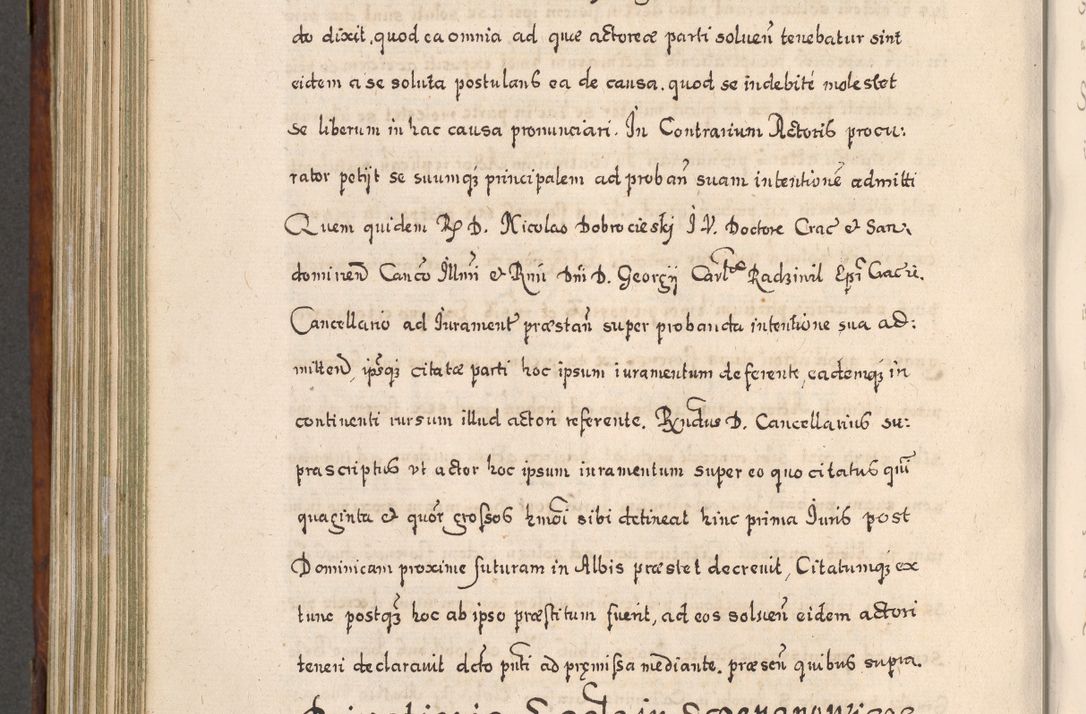 do dixit, quod ea omnia ad quæ actoreæ parti solueñ tenebatur sint
eidem a se soluta postulans ea de causa, quod se indebité molestet
se liberum in hac causa pronunciari. In Contrarium Actoris procu:
rator petijt se suumqȝ principalem ad probañ suam intentionē admitti
Quem quidem R D. Nicolao Dobrocieskj I. V. Doctore Crac et San:
domirieñ Canco Illmi et Rmi Dni D. Georgij Carlis Radziwil Epi Cracȣ.
Cancellario ad Iurament præstañ super probanda intentione sua ad:
mitteñ, ipsiqȝ citatæ parti hoc ipsum iuramentum deferente, eademqȝ in
continenti rursum illud actori referente. Rndus D. Cancellarius su:
prascriptus vt actor hoc ipsum iuramentum super eo quo citatus quin
quaginta et quor grossos hmoi sibi detineat hinc prima Iuris post
Dominicam proxime futuram in Albis præstet decreuit, Citatumqȝ ex
tunc postqȝ hoc ab ipso præstitum fuerit, ad eos solueñ eidem actori
teneri declarauit dcto pnti ad pręmissa mediante. præseñ quibus supra.